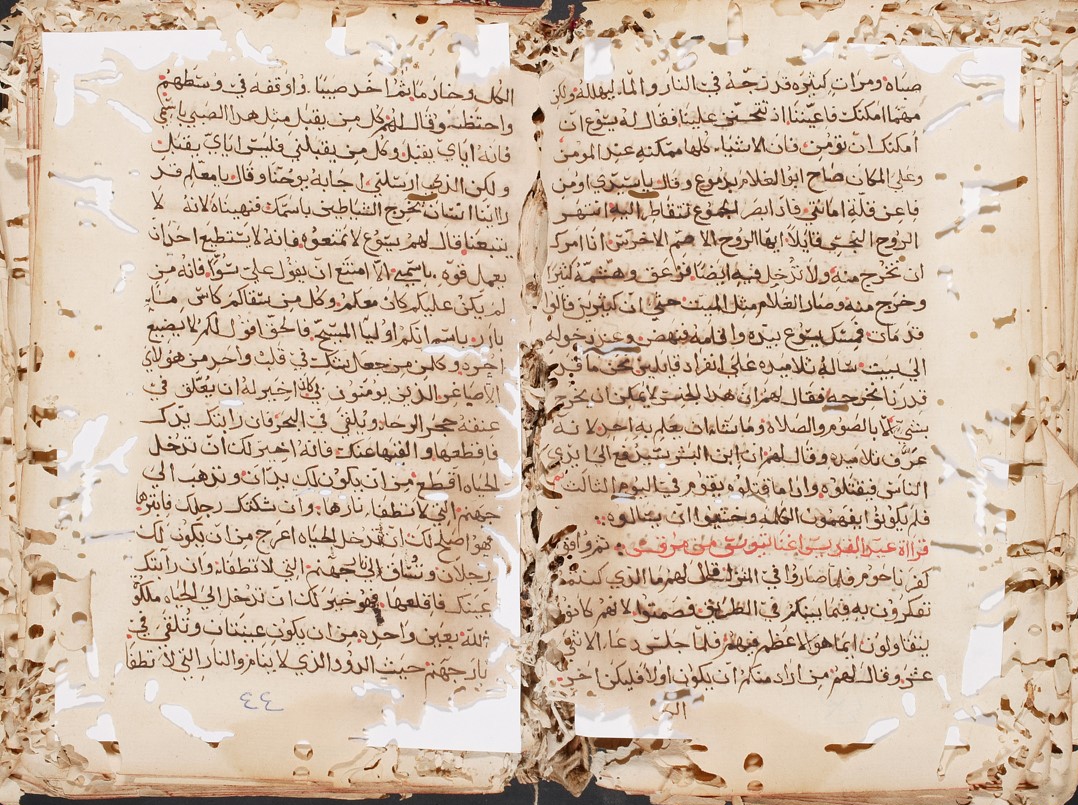 صباه ومرات كثيره قد زجه في النار والماء ليهلكه ولكن
مهما امكنك فاعيننا اذ تتحنن علينا فقال له يسوع ان
امكنك ان تؤمن فان الاشياء كلها ممكنه عند المومن
وعلى المكان صاح ابو الغلام بدموع وقال يا سيدي اومن
فاعن قلة امانتي فاذ ابصر الجموع تتقاطر اليه انتهر
الروح النجس قايلا ايها الروح الاصم الاخرس انا امرك
ان تخرج منه ولا تدخل فيه ايضا فزعق وهشمه كثيرا
وخرج منه وصار الغلام مثل الميت حتى ان كثيرين قالوا
قد مات فمسك يسوع بيده واقامه فنهض وعند دخوله
الى بيت ساله تلاميذه على انفراد قايلين نحن ما
قدرنا نخرجه فقال لهم ان هذا الجنس لا يمكن ان يخرج
بشي الا بالصوم والصلاة وما شا ان يعلم به احد لانه
عرف تلاميذه وقال لهم ان ابن البشر سيدفع الى ايدي
الناس فيقتلوه واذا ما قتلوه يقوم في اليوم الثالث
فلم يكونوا يفهمون الكلمه وخشيوا ان يسالوه
قراة عيد القديس اغناتيوس من مرقس ثم وافوا
كفرناحوم فلما صاروا في المنزل قال لهم ما الذي كنتم
تفكرون به فيما بينكم في الطريق فصمتوا لانهم كانوا
يتقاولون ايما هو الاعظم منهم فلما جلس دعا الاثني
عشر وقال لهم من اراد منكم ان يكون اولا فليكن اخر
الكل
الكل وخادما ثم اخد صبيا واوقفه في وسطهم
واحتظنه وقال لهم كل من يقبل مثل هدا الصبي باسمي
فانه اياي يقبل وكل من يقبلني فليس اياي يقبل
ولكن الذي ارسلني اجابه يوحنا وقال يا معلم قد
راينا انسان يخرج الشياطين باسمك فنهيناه لانه لا
يتبعنا قال لهم يسوع لا تمنعوه فانه لا يستطيع احد ان
يعمل قوه باسمي الا امتنع ان يقول علي سوا فانه من
لم يكن عليكم كان معكم وكل من سقاكم كاس ما
بارد باسم انكم اوليا المسيح فالحق اقول لكم لا يضيع
اجره وكل من جعل لشك في قلب واحد من هولاي
الاصاغر الذين يومنون بي كان اخير له ان يعلق في
عنقه حجر الرحا ويلقى في البحر فان رابتك يدك
فاقطعها والقيها عنك فانه اخير لك ان تدخل
الحياه اقطع من ان يكون لك يدان وتذهب الى
جهنم التي لا تطفا نارها وان شككتك رجلك فابترها
فهو اصلح لك ان تدخل الحياه اعرج من ان يكون لك
رجلان وتساق الى جهنم التي لا تطفا وان رابتك
عينك فاقلعها فهو خير لك ان تدخل الى الحياه ملكوت
الله بعين واحده من ان يكون عينان وتلقى في
نار جهنم حيث الدود الذي لا ينام والنار التي لا تطفا
٤٤